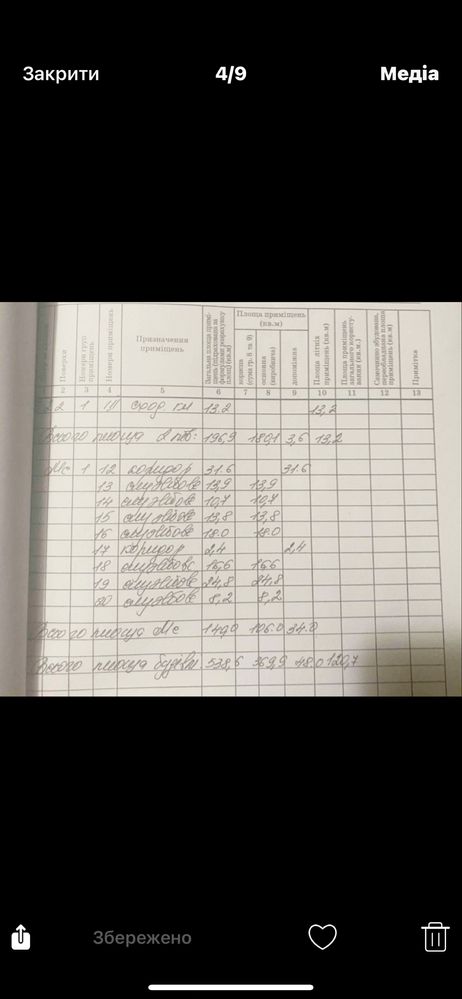 Закрити 4/9 Медіа
Поверхи
Номери груп приміщень
Номери приміщень
Призначення приміщень
Загальна площа приміщень (підрахована за формулами підрахунку площі) (кв.м)
Площа приміщень (кв.м)
корисна (сума гр. 8 та 9)
основна (виробнича)
допоміжна
Площа літніх приміщень (кв.м)
Площа приміщень загального користування (кв.м.)
Самочинно збудована, переобладнана площа приміщень (кв.м)
Примітка
2 3 4 5 6 7 8 9 10 11 12 13
2 1 III 13.2 13,2
Всього площа 2 пов: 196,9 180,1 3,6 13,2
Мс 1 12 коридор 31.6 31.6
13 службове 13,9 13,9
14 службове 10,7 10,7
15 службове 13,8 13,8
16 службове 18.0 18.0
17 коридор 2,4 2,4
18 службове 16,6 16,6
19 службове 24,8 24,8
20 службове 8,2 8,2
Всього площа Мс 140,0 106.0 34.0
Всього площа будівлі. 538,6 369,9 48.0 120,7
Збережено